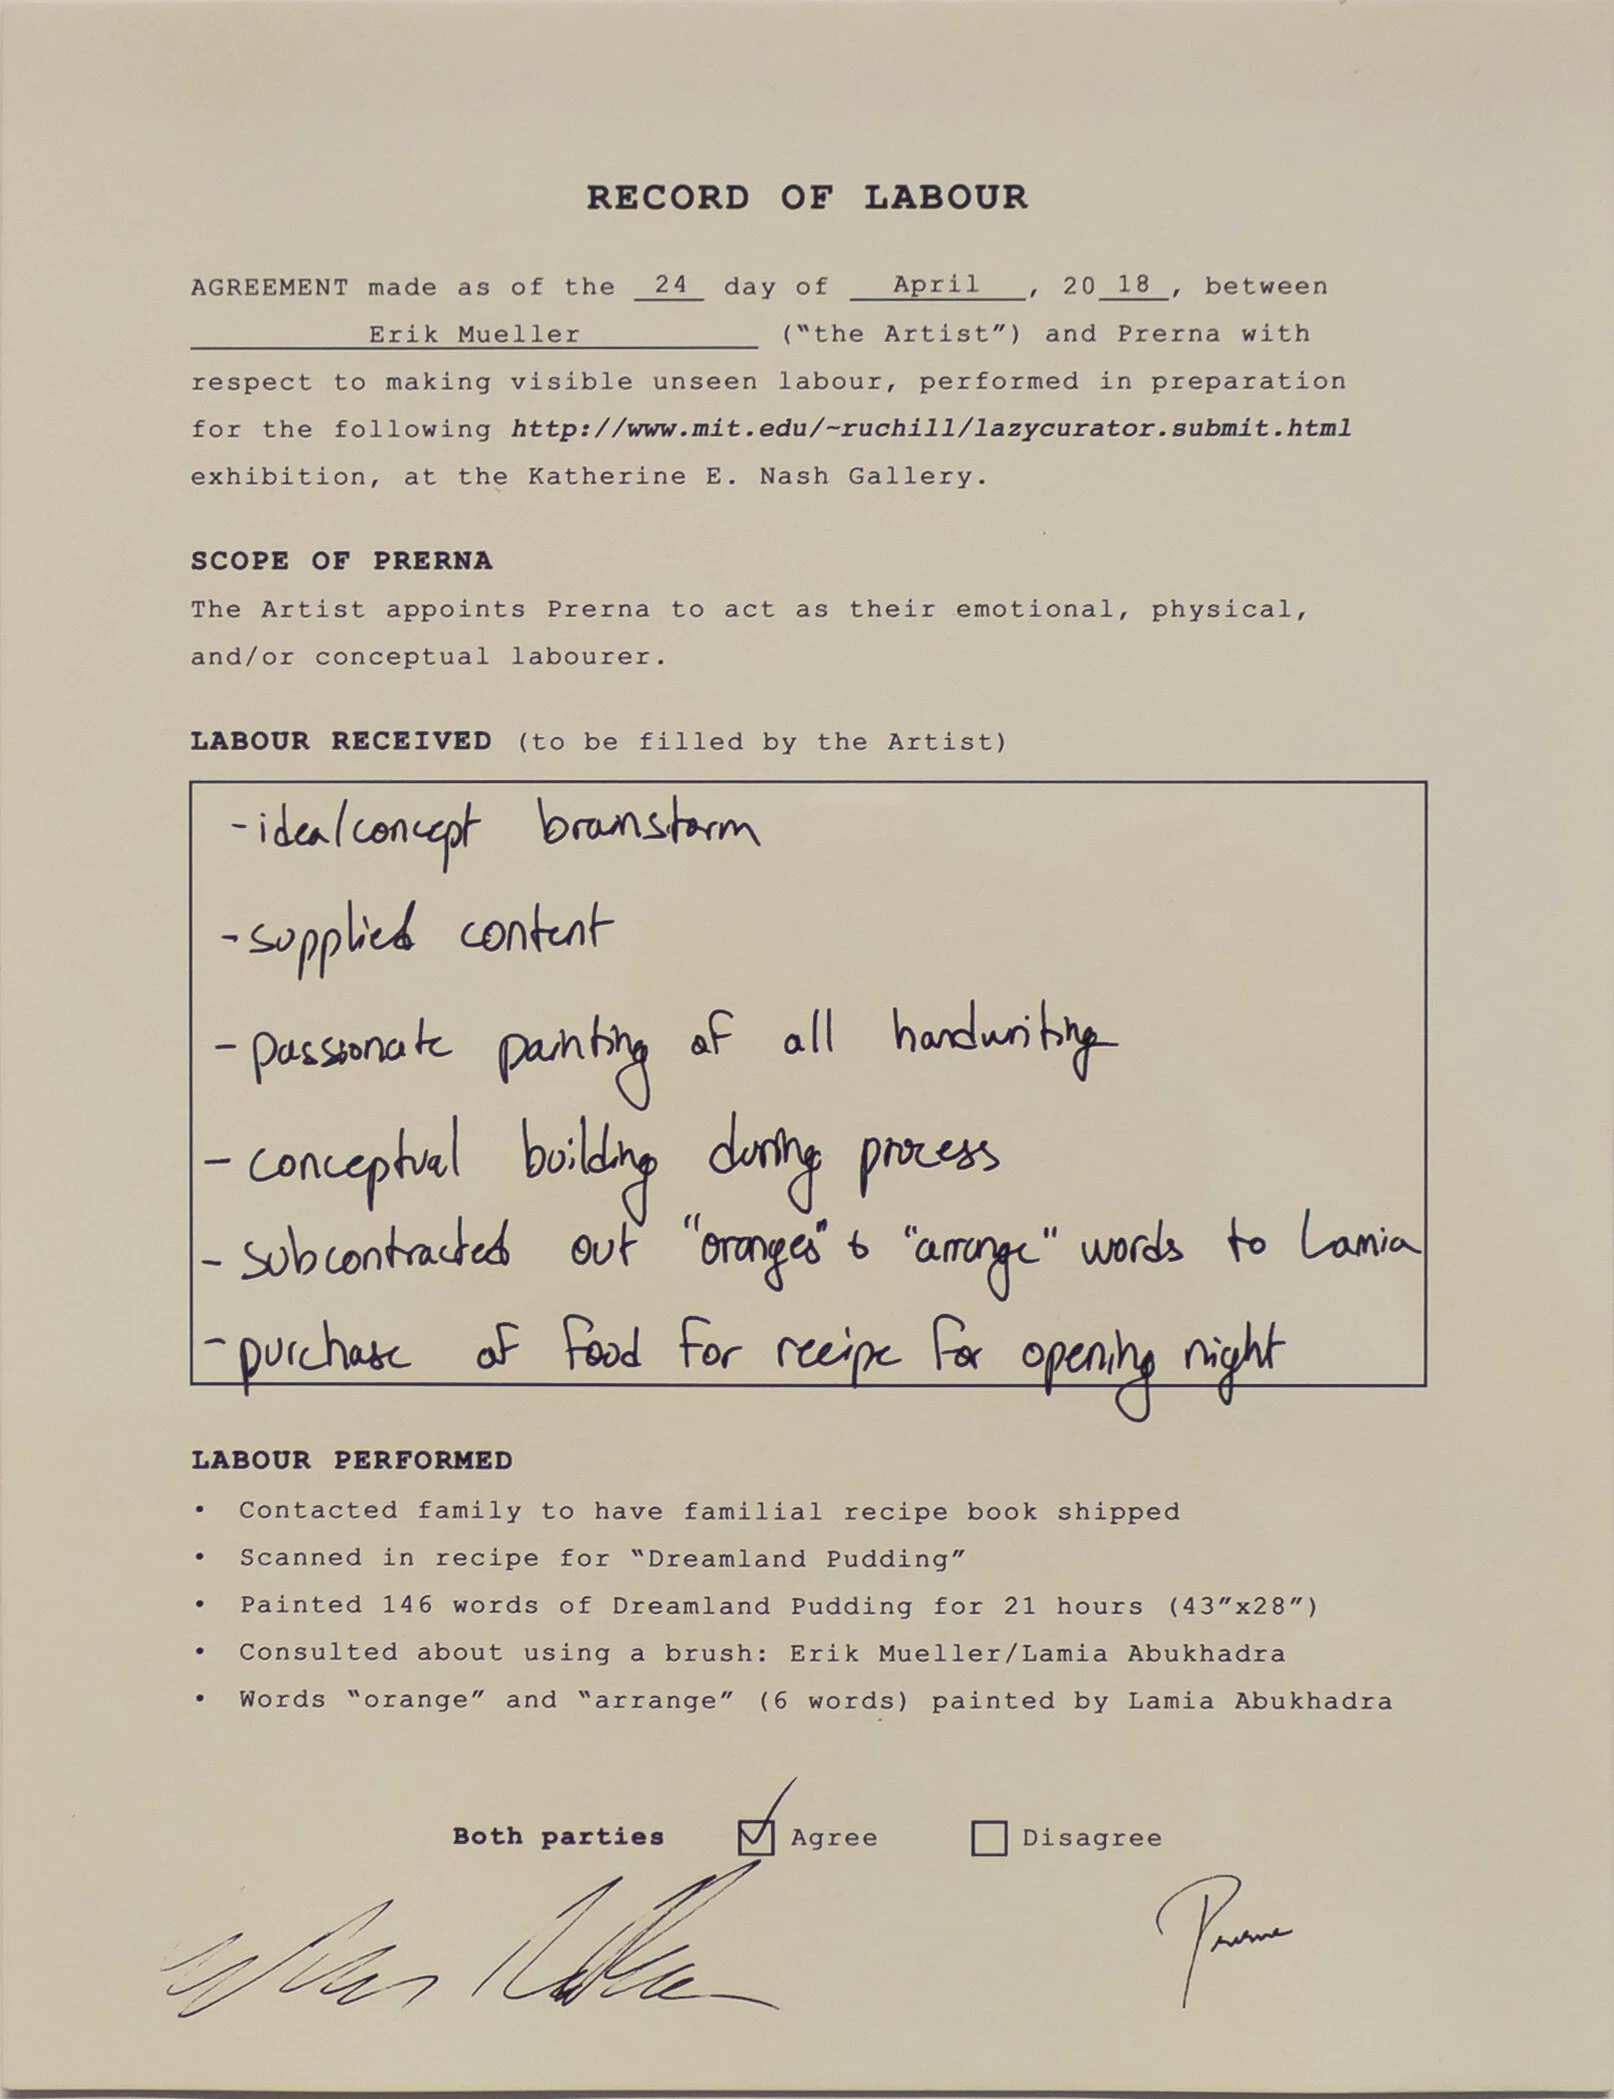 RECORD OF LABOUR
AGREEMENT made as of the 24 day of April, 20 18, between
Erik Mueller ("the Artist") and Prerna with
respect to making visible unseen labour, performed in preparation
for the following http://www.mit.edu/~ruchill/lazycurator.submit.html
exhibition, at the Katherine E. Nash Gallery.
SCOPE OF PRERNA
The Artist appoints Prerna to act as their emotional, physical,
and/or conceptual labourer.
LABOUR RECEIVED (to be filled by the Artist)
- idea/concept brainstorm
- supplied content
- passionate painting of all handwriting
- conceptual building during process
- subcontracted out "oranges" & "arrange" words to Lamia
- purchase of food for recipe for opening night
LABOUR PERFORMED
• Contacted family to have familial recipe book shipped
• Scanned in recipe for "Dreamland Pudding"
• Painted 146 words of Dreamland Pudding for 21 hours (43"x28")
• Consulted about using a brush: Erik Mueller/Lamia Abukhadra
• Words "orange" and "arrange" (6 words) painted by Lamia Abukhadra
Both parties Agree Disagree
Prerna